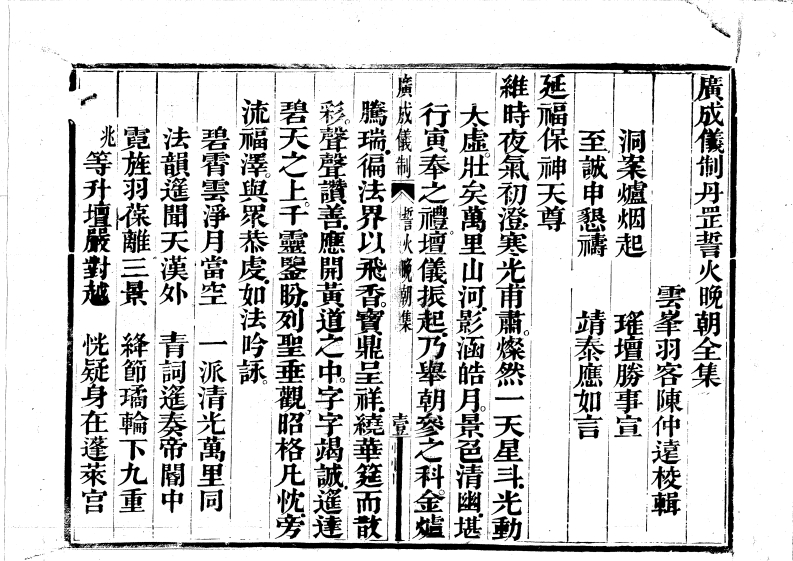 廣成儀制丹罡誓火晚朝全集
雲峯羽客陳仲遠校輯
洞案爐烟起　璀壇勝事宣
至誠申懇禱　靖泰應如言
延福保神天尊
維時夜氣初澄寒光甫肅。燦然一天星斗．光動
太虛。壯矣萬里山河．影涵皓月。景色清幽．堪
行寅奉之禮。壇儀振起．乃舉朝參之科。金爐
廣成儀制　誓火晚朝集　壹
騰瑞．徧法界以飛香。寶鼎呈祥．繞華筵而散
彩。聲聲讚善．應開黃道之中。字字竭誠．遙達
碧天之上。千靈鑒盼．列聖垂觀．昭格凡忱．旁
流福澤。與眾恭虔．如法吟詠。
碧霄雲淨月當空　一派清光萬里同
法韻遙聞天漢外　青詞遙奏帝閽中
霓旌羽葆離三景　絳節璚輪下九重
兆等升壇嚴對越　恍疑身在蓬萊宮